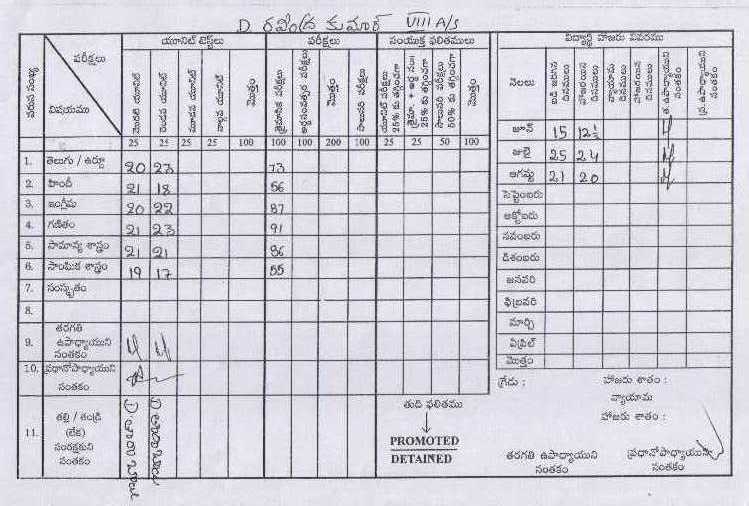 D రవీంద్ర కుమార్ VIII A/S
యూనిట్ టెస్ట్‌లు పరీక్షలు సంయుక్త ఫలితములు
వరుస సంఖ్య పరీక్షలు విషయము
మొదటి యూనిట్ రెండవ యూనిట్ మూడవ యూనిట్ నాల్గవ యూనిట్ మొత్తం త్రైమాసిక పరీక్షలు అర్ధసంవత్సర పరీక్షలు మొత్తం సాలుసరి పరీక్షలు యూనిట్ పరీక్షలు 25% కు తగ్గించగా త్రైమా. + అర్ధ సం॥ 25% కు తగ్గించగా సాలుసరి పరీక్షలు 50% కు తగ్గించగా మొత్తం
25 25 25 25 100 100 100 200 100 25 25 50 100
1. తెలుగు / ఉర్దూ 20 23 73
2. హిందీ 21 18 56
3. ఇంగ్లీషు 20 22 87
4. గణితం 21 23 91
5. సామాన్య శాస్త్రం 21 21 86
6. సాంఘిక శాస్త్రం 19 17 55
7. సంస్కృతం
8.
9. తరగతి
ఉపాధ్యాయుని
సంతకం
10. ప్రధానోపాధ్యాయుని
సంతకం
11. తల్లి / తండ్రి
(లేక)
సంరక్షకుని
సంతకం
తుది ఫలితము
PROMOTED
DETAINED
విద్యార్థి హాజరు వివరము
నెలలు బడి జరిగిన దినములు హాజరయిన దినములు వ్యాయామ దినములు హాజరయిన దినములు త.ఉపాధ్యాయుని సంతకం ప్ర.ఉపాధ్యాయుని సంతకం
జూన్ 15 12½
జులై 25 24
ఆగష్టు 21 20
సెప్టెంబరు
అక్టోబరు
నవంబరు
డిశంబరు
జనవరి
ఫిబ్రవరి
మార్చి
ఏప్రిల్
మొత్తం
గ్రేడు : హాజరు శాతం :
వ్యాయామ
హాజరు శాతం :
తరగతి ఉపాధ్యాయుని
సంతకం
ప్రధానోపాధ్యాయుని
సంతకం